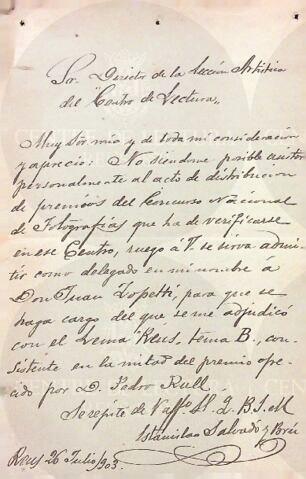 Sr. Director de la Sección Artística
del "Centro de Lectura"
Muy Sor mio y de toda mi consideracion
y aprecio: No siendome posible asistir
personalmente al acto de distribucion
de premios del Concurso Nacional
de Fotografías que ha de verificarse
en ese Centro, ruego á V. se sirva admi-
tir como delegado en mi nombre á
Don Juan Zopetti, para que se
haga cargo del que se me adjudicó
con el Lema "Reus, tema B., con-
sistente en la mitad del premio ofre-
cido por D. Pedro Rull
Se repite de V. Q. B. S. M
Estanislao Salvadó y Brú
Reus 26 Julio/903.